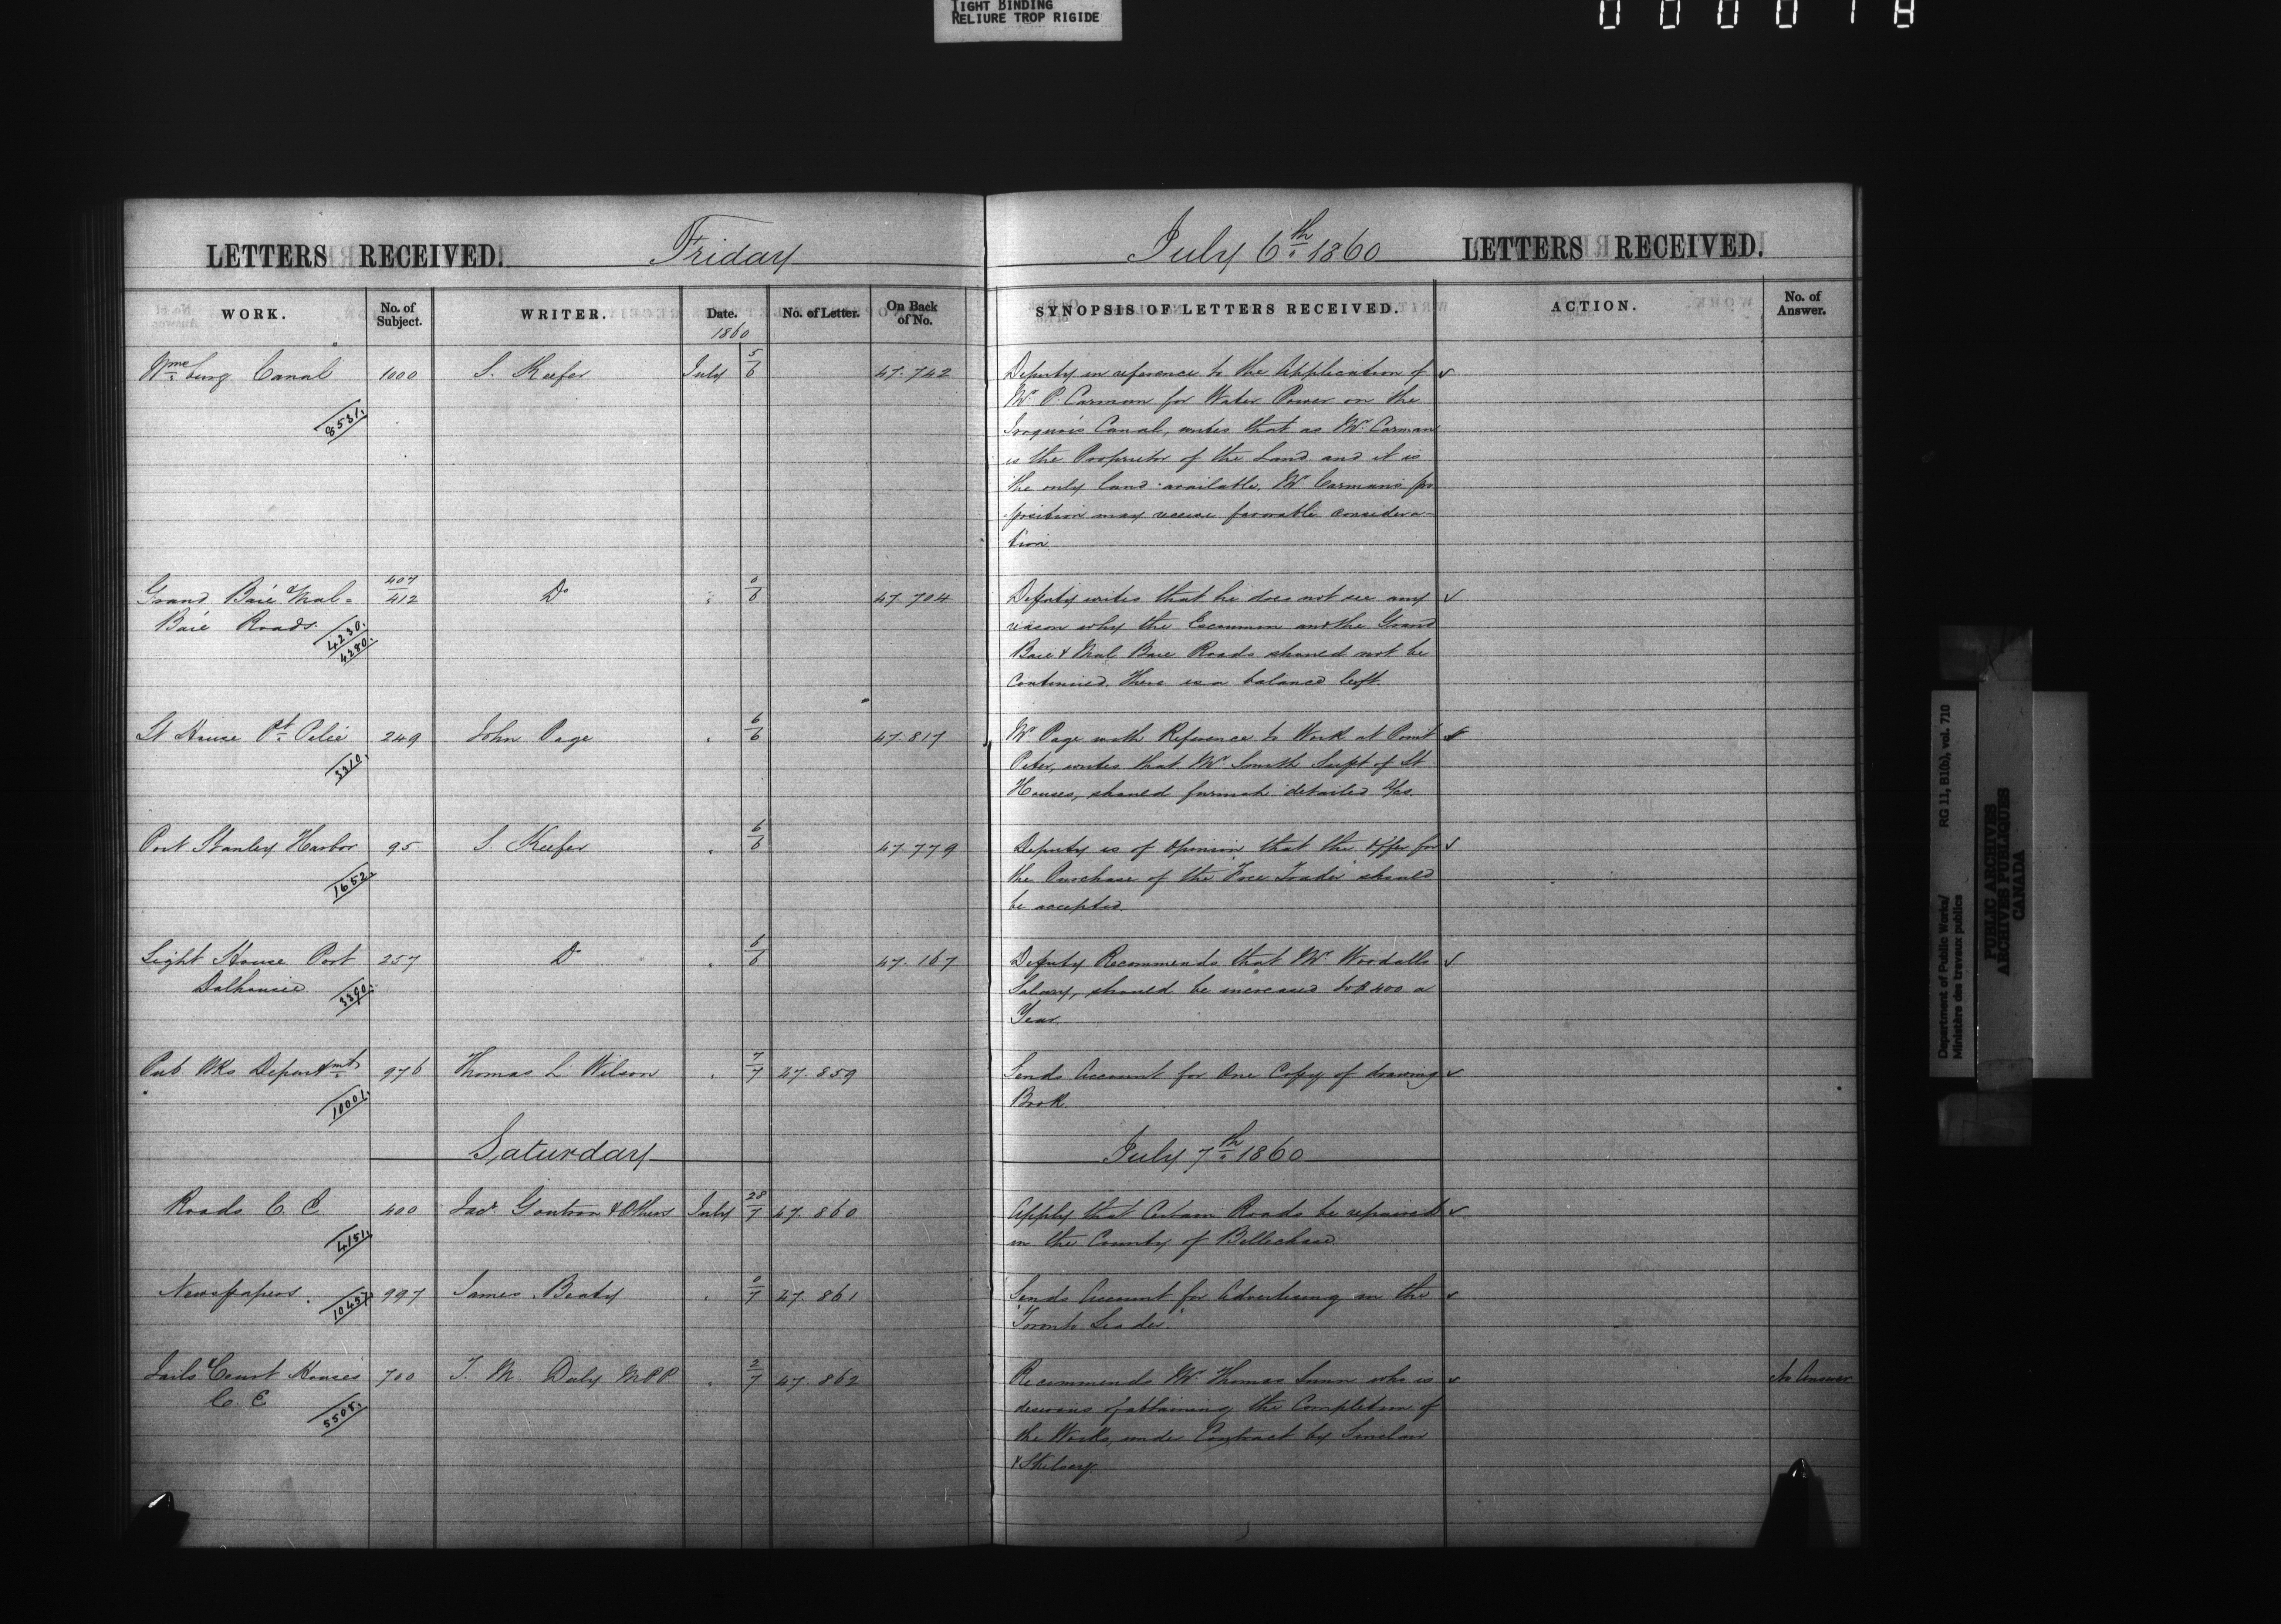 TIGHT BINDING
RELIURE TROP RIGIDE
LETTERS RECEIVED. Friday
WORK. No. of Subject. WRITER. Date. No. of Letter. On Back of No.
1860
Wmsburg Canal 1000 S. Keefer July 5/6 47.742
8531.
Grand Baie & Mal= 407/412 Do " 0/6 47.704
Baie Roads. 4230.
4280.
Lt House Pt. Pelie 249 John Page " 6/6 47.817
3310.
Port Stanley Harbor 95 S. Keefer " 6/6 47.779
1652.
Light House Port 257 Do " 6/6 47.167
Dalhousie 3390.
Pub. Wks Departmt. 976 Thomas L Wilson " 7/7 47.859
10001.
Saturday
Roads C. E 400 & Others July 28/7 47.860
4151.
Newspapers. 997 James Beaty " 0/7 47.861
Jails & Court Houses 700 T. M. Daly M.P.P " 2/7 47.862
C. E
5505.
July 6th 1860 LETTERS RECEIVED.
SYNOPSIS OF LETTERS RECEIVED. ACTION. No. of Answer.
Deputy in reference to the Application of
Mr P. Carman for Water Power on the
Iroquois Canal, writes that as Mr Carman
is the Proprietor of the Land and it is
the only land available. Mr Carman's pro
position may receive favorable considera-
tion
Deputy writes that he does not see any
reason why the Escoumin and the Grand
Baie & Mal Baie Roads should not be
Continued. There is a balance left.
Mr Page with Reference to Work at Point
Peter, writes that Mr Smith Supt of Lt
Houses, should furnish detailed a/cs.
Deputy is of opinion that the offer for
the Purchase of the "Free Trader" should
be accepted.
Deputy Recommends that Mr Woodalls
Salary, should be increased to $400 a
Year
Sends Account for One Copy of drawing
Book
July 7th 1860
Apply that Certain Roads be repaired
in the County of Bellechase.
Sends Account for Advertising in the
"Toronto Leader."
Recommends Mr Thomas who is No Answer
desirous of attaining the Completion of
the Works, under Contract by Sinclair
& Skelsey.
Department of Public Works/ RG 11, B1(b), vol. 710
Ministère des travaux publics
PUBLIC ARCHIVES
ARCHIVES PUBLIQUES
CANADA